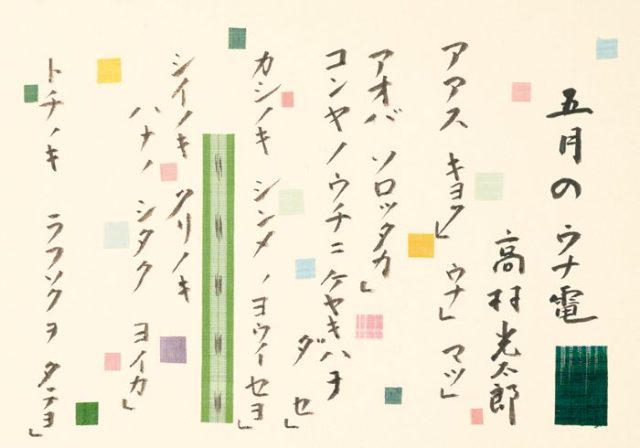 五月のウナ電
高村光太郎
アアス キヨク」 ウナ」 マツ」
アオバ ソロッタカ」
コンヤノウチニケヤキハヲ
ダ セ」
カシノキ シンメ ノヨウイーセヨ」
シイノキ クリノキ
ハナノ シタク ヨイカ」
トチノキ ラフソクヲ タテヨ」